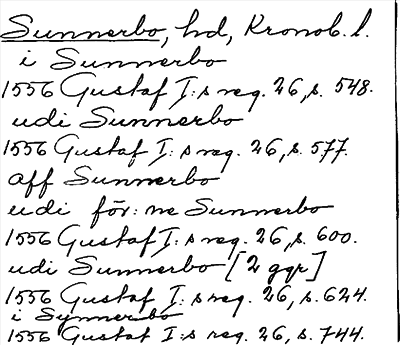 Sunnerbo, hd, Kronob. l.
i Sunnerbo
1556 Gustaf I:s reg. 26, s. 548.
udi Sunnerbo
1556 Gustaf I:s reg. 26, s. 577.
aff Sunnerbo
udi för:ne Sunnerbo
1556 Gustaf I:s reg. 26, s. 600.
udi Sunnerbo [2 ggr]
1556 Gustaf I:s reg. 26, s. 624.
i Synnerbo
1556 Gustaf I:s reg. 26, s. 744.